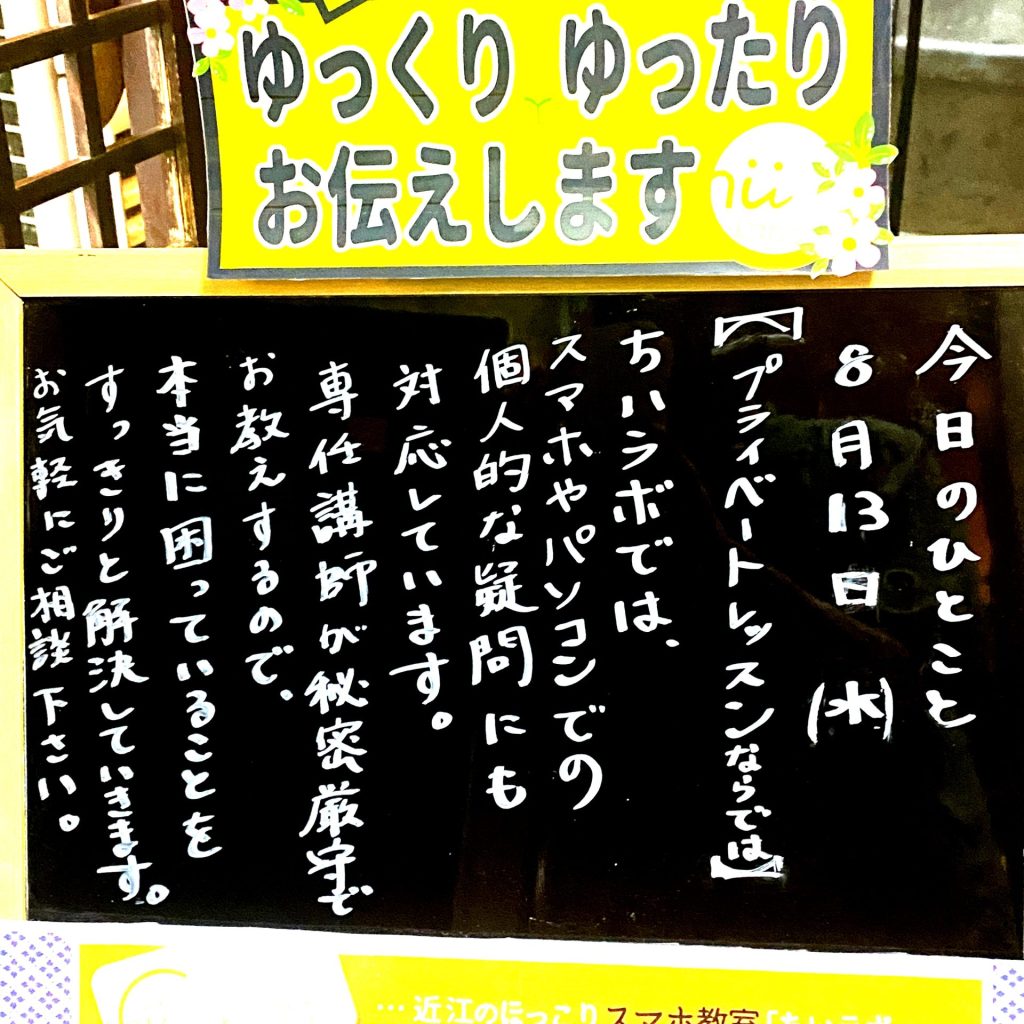 ゆっくり ゆったり
お伝えします
今日のひとこと
8月13日(水)
【プライベートレッスンならでは】
ちいラボでは、
スマホやパソコンでの
個人的な疑問にも
対応しています。
専任講師が秘密厳守で
お教えするので、
本当に困っていることを
すっきりと解決していきます。
お気軽にご相談下さい。
…近江のほっこりスマホ教室